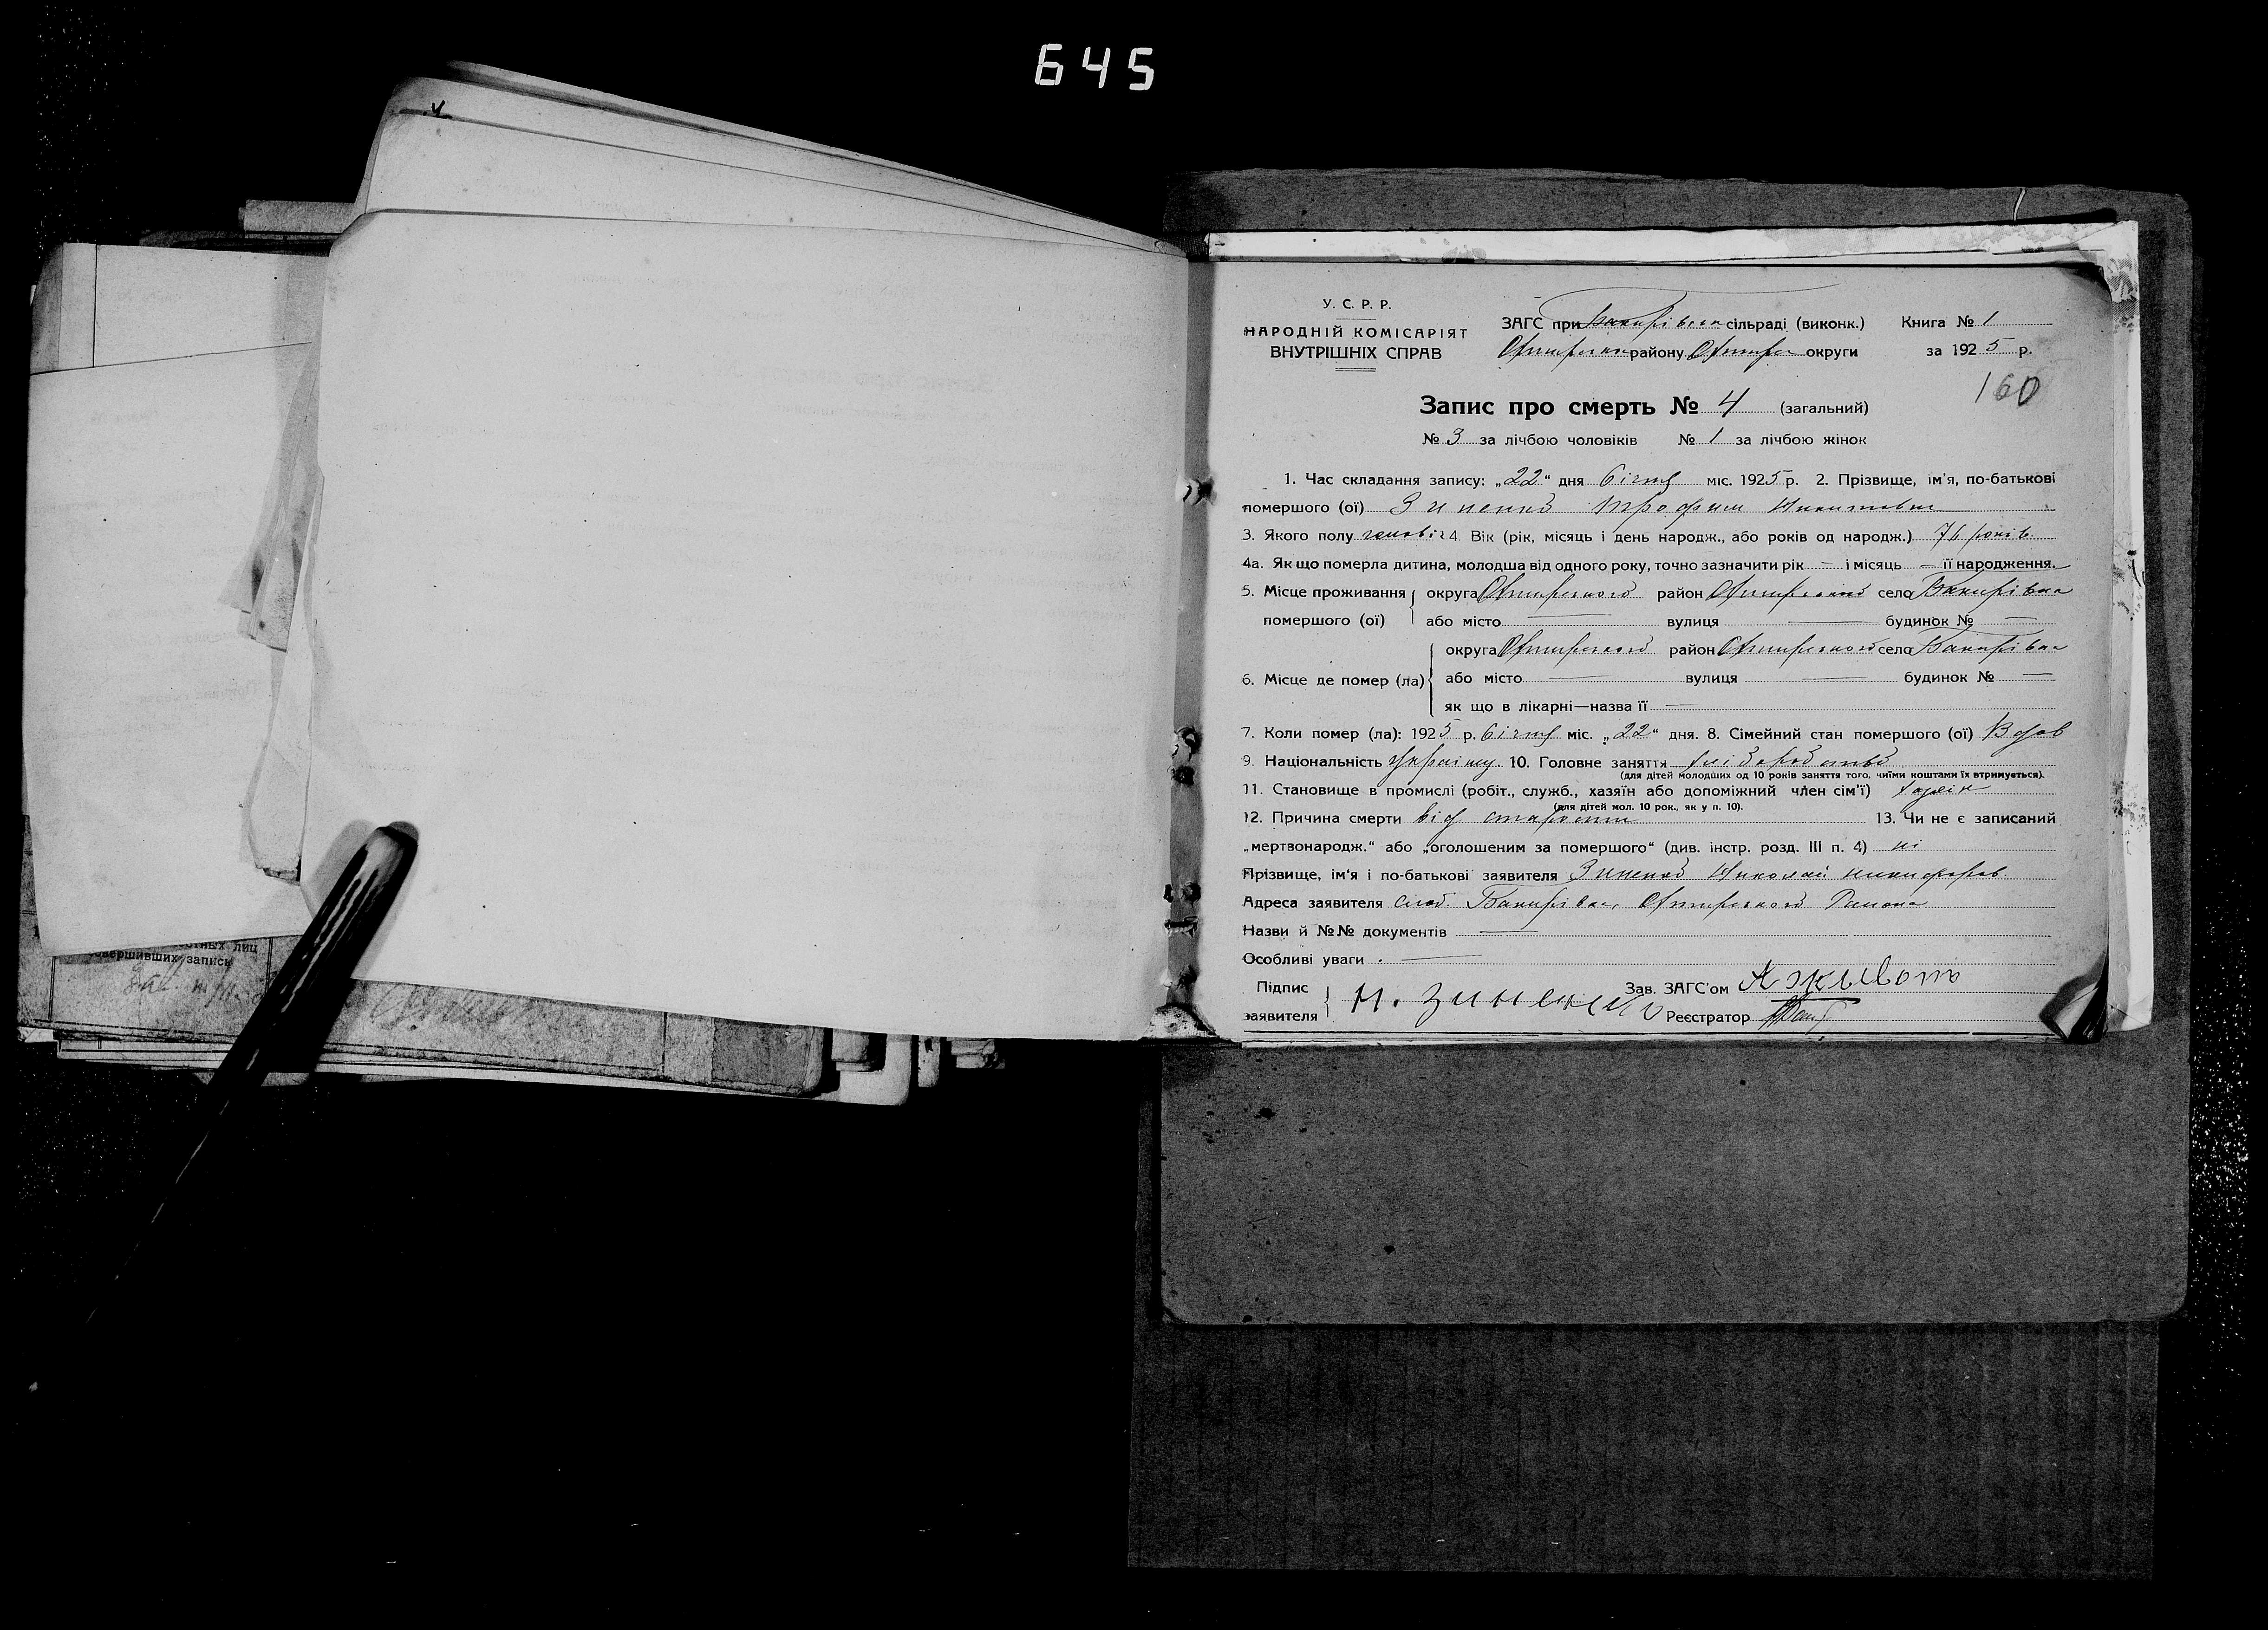 645
У. С. Р. Р.
НАРОДНІЙ КОМІСАРІЯТ
ВНУТРІШНІХ СПРАВ
ЗАГС при Бакирівськ сільраді (виконк.) Книга № 1
Охтирськ району Охтирс округи за 1925 р.
160
Запис про смерть № 4 (загальний)
№ 3 за лічбою чоловіків № 1 за лічбою жінок
1. Час складання запису: „22“ дня січня міс. 1925 р. 2. Прізвище, ім'я, по-батькові
помершого (ої) Зиненко Трофим Никитович
3. Якого полу чоловіч 4. Вік (рік, місяць і день народж., або років од народж.) років
4а. Як що померла дитина, молодша від одного року, точно зазначити рік — і місяць — її народження.
5. Місце проживання округа Охтирського район Охтирського село Бакирівка
помершого (ої) або місто — вулиця — будинок № —
округа Охтирського район Охтирського село Бакирівка
6. Місце де помер (ла) або місто — вулиця — будинок № —
як що в лікарні—назва її —
7. Коли помер (ла): 1925 р. січня міс. „22“ дня. 8. Сімейний стан помершого (ої) Вдов
9. Національність Україн 10. Головне заняття хліборобство
(для дітей молодших од 10 років заняття того, чиїми коштами їх втримується).
11. Становище в промислі (робіт., служб., хазяїн або допоміжний член сім'ї) хазяін
(для дітей мол. 10 рок., як у п. 10).
12. Причина смерти від старости 13. Чи не є записаний
„мертвонародж.“ або „оголошеним за помершого“ (див. інстр. розд. III п. 4) ні
Прізвище, ім'я і по-батькові заявителя Зиненко Николай Никифоров
Адреса заявителя слоб. Бакирівка, Охтирського Района
Назви й №№ документів —
Особливі уваги . —
Підпис
заявителя Н. Зиненко
Зав. ЗАГС'ом
Реєстратор
лиц
совершивших запись